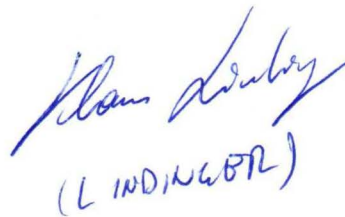 Klaus Lindinger
(LINDINGER)